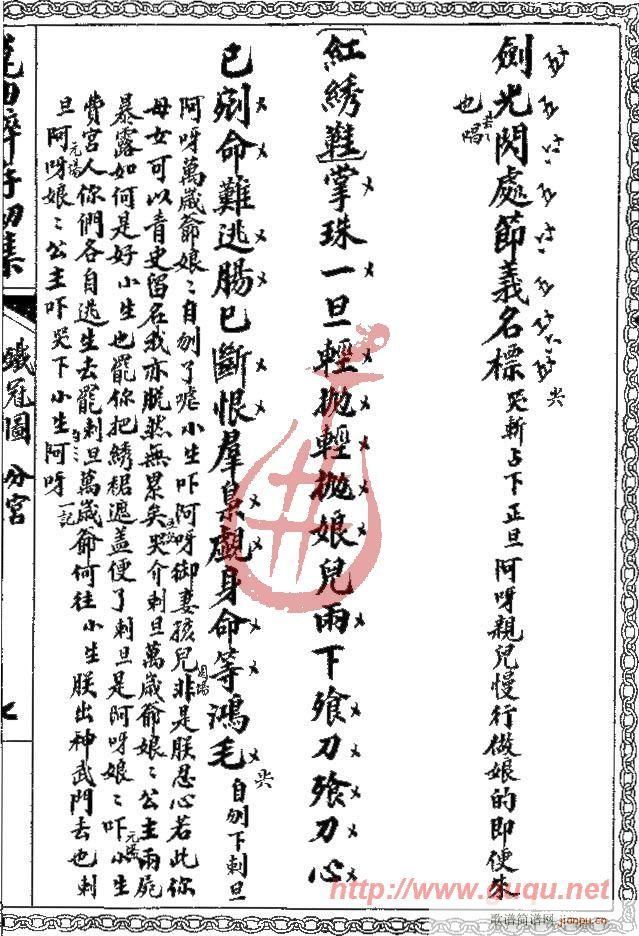 劍光閃處節義名標 哭斬占下正旦阿呀親兒慢行做娘的即便來
也 唱
〔紅綉鞋〕掌珠一旦輕拋輕拋娘兒兩下飧刀飧刀心
已剜命難逃腸已斷恨羣梟覷身命等鴻毛 自刎下刺旦
阿呀萬歲爺娘〻自刎了嚛小生吓阿呀御妻孩兒非是朕忍心若此你
母女可以青史留名我亦脫然無累矣哭介刺旦萬歲爺娘〻公主兩屍
暴露如何是好小生也罷你把綉裙遮蓋便了刺旦是阿呀娘〻吓小生
費宮人你們各自逃生去罷刺旦萬歲爺何往小生朕出神武門去也刺
旦阿呀娘〻公主吓哭下小生阿呀
鐵冠圖 分宮
七
http://www.guqu.net
歌谱简谱网
jianpu.cn